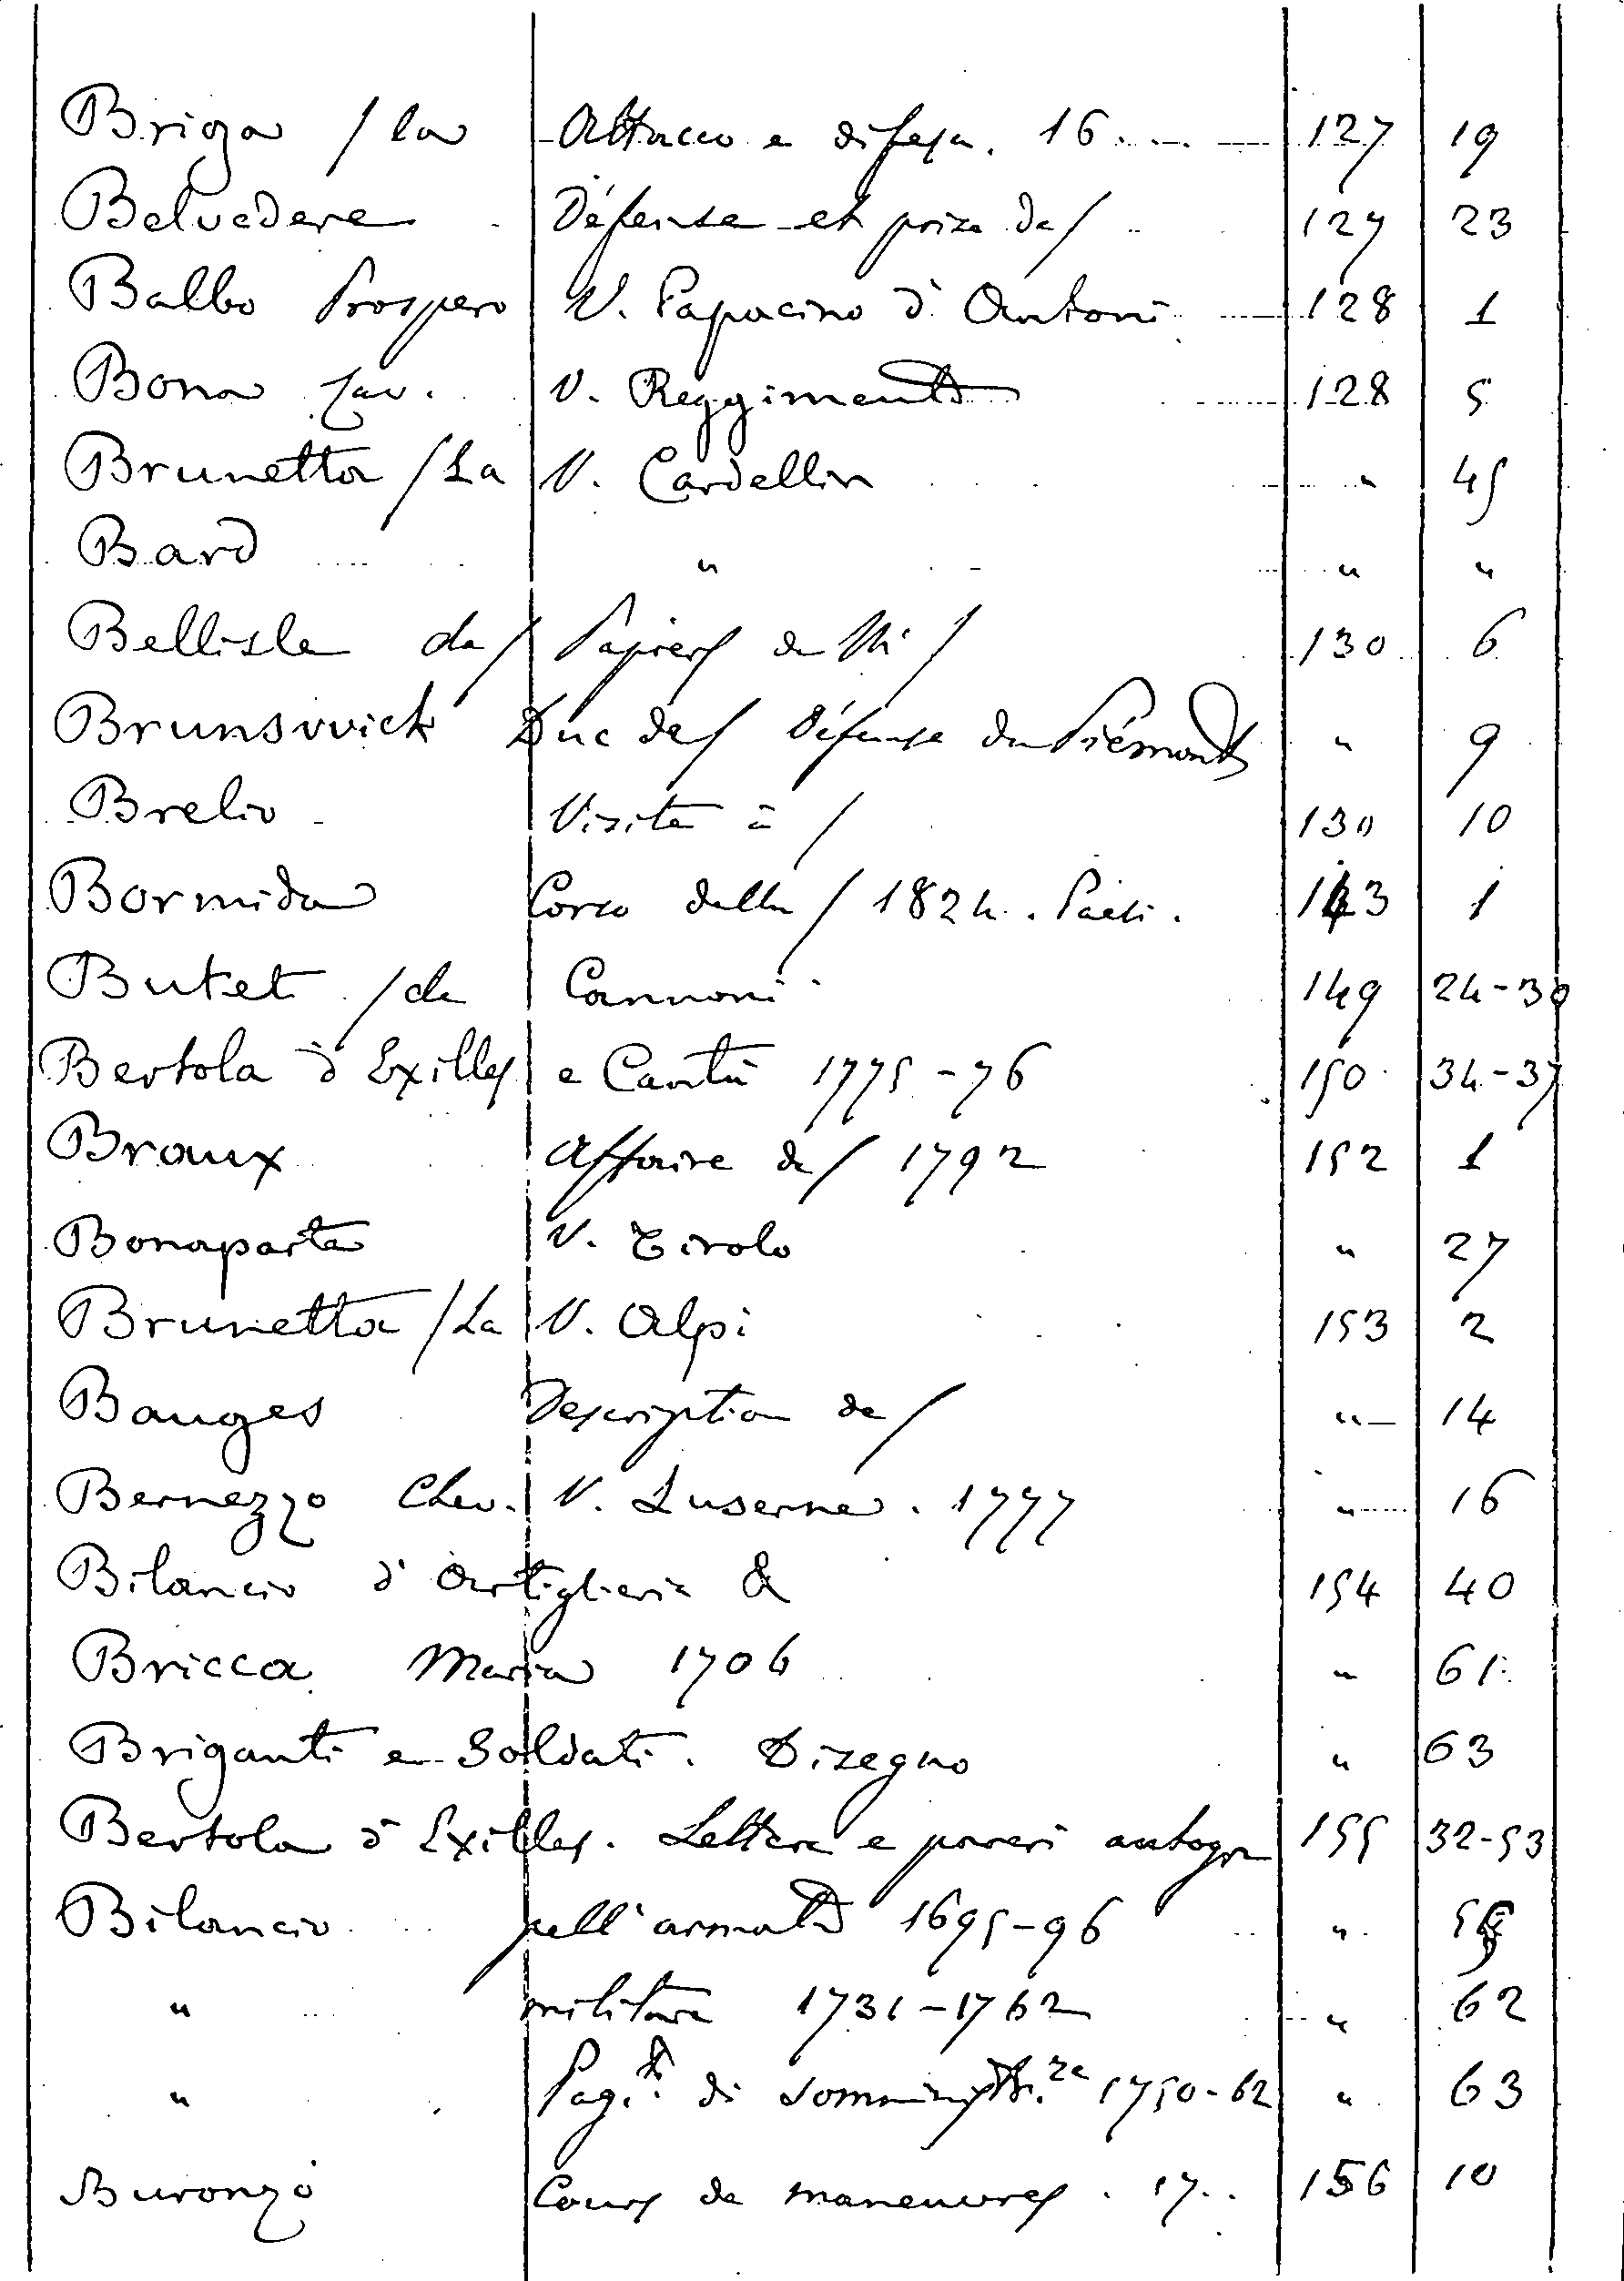 Briga / la Attacco e difesa. 16.... 127 19
Belvedere Défense et prise de / 127 23
Balbo Prospero V. Papacino d'Antoni 128 1
Bona Cav. V. Reggimento 128 5
Brunetta / La V. Cardellin " 45
Bard " " "
Bellisle de / Papiers de Mr / 130 6
Brunswick Duc de / Défense du Piémont " 9
Brelio Visite à / 130 10
Bormida Corso della / 1824. Paesi. 143 1
Butet / de Cannoni 149 24-30
Bertola d'Exilles e Cantù 1775-76 150 34-37
Braux Affaire de / 1792 152 1
Bonaparte V. Tirolo " 27
Brunetta / La V. Alpi 153 2
Bauges Description de / " 14
Bernezzo Chev. V. Luserne. 1777 " 16
Bilancio d'Artiglieria & 154 40
Bricca Maria 1706 " 61
Briganti e Soldati. Disegno " 63
Bertola d'Exilles. Lettere e pareri autogr 155 32-53
Bilancio nell'armata 1695-96 "
" militare 1731-1762 " 62
" Pag.ti di somministr.ze 1750-62 " 63
Buronzo Cours de maneuvres. 17.. 156 10